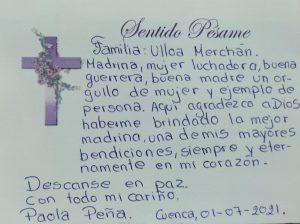 Sentido Pésame
Familia: Ulloa Merchán.
Madrina, mujer luchadora, buena
guerrera, buena madre un or-
gullo de mujer y ejemplo de
persona. Aquí agradezco a Dios
haberme brindado la mejor
madrina, una de mis mayores
bendiciones, siempre y eter-
namente en mi corazón.
Descanse en paz.
con todo mi cariño.
Paola Peña. Cuenca, 01-07-2021.